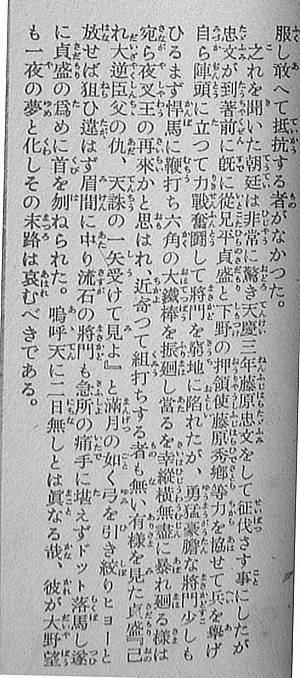 服し敢へて抵抗する者がなかつた。
之れを聞いた朝廷は非常に驚き天慶三年藤原忠文をして征伐さす事にしたが
忠文が到著前に旣に從兄平貞盛と下野の押領使藤原秀鄕等力を協せて兵を擧げ
自ら陣頭に立つて力戰奮鬪して將門を窮地に陷れたが、勇猛豪膽な將門少しも
ひるまず悍馬に鞭打ち六角の大鐵棒を振廻し當るを幸縱橫無盡に暴れ廻る樣は
宛ら夜叉王の再來かと思はれ、近寄つて組打ちする者も無い有樣を見た貞盛『己
れ大逆臣父の仇、天誅の一矢受けて見よ』と滿月の如く弓を引き絞りヒョーと
放せば狙ひ違はず眉間に中り流石の將門も急所の痛手に堪えずドット落馬し遂
に貞盛の爲めに首を刎ねられた。嗚呼天に二日無しとは眞なる哉、彼が大野望
も一夜の夢と化しその末路は哀むべきである。